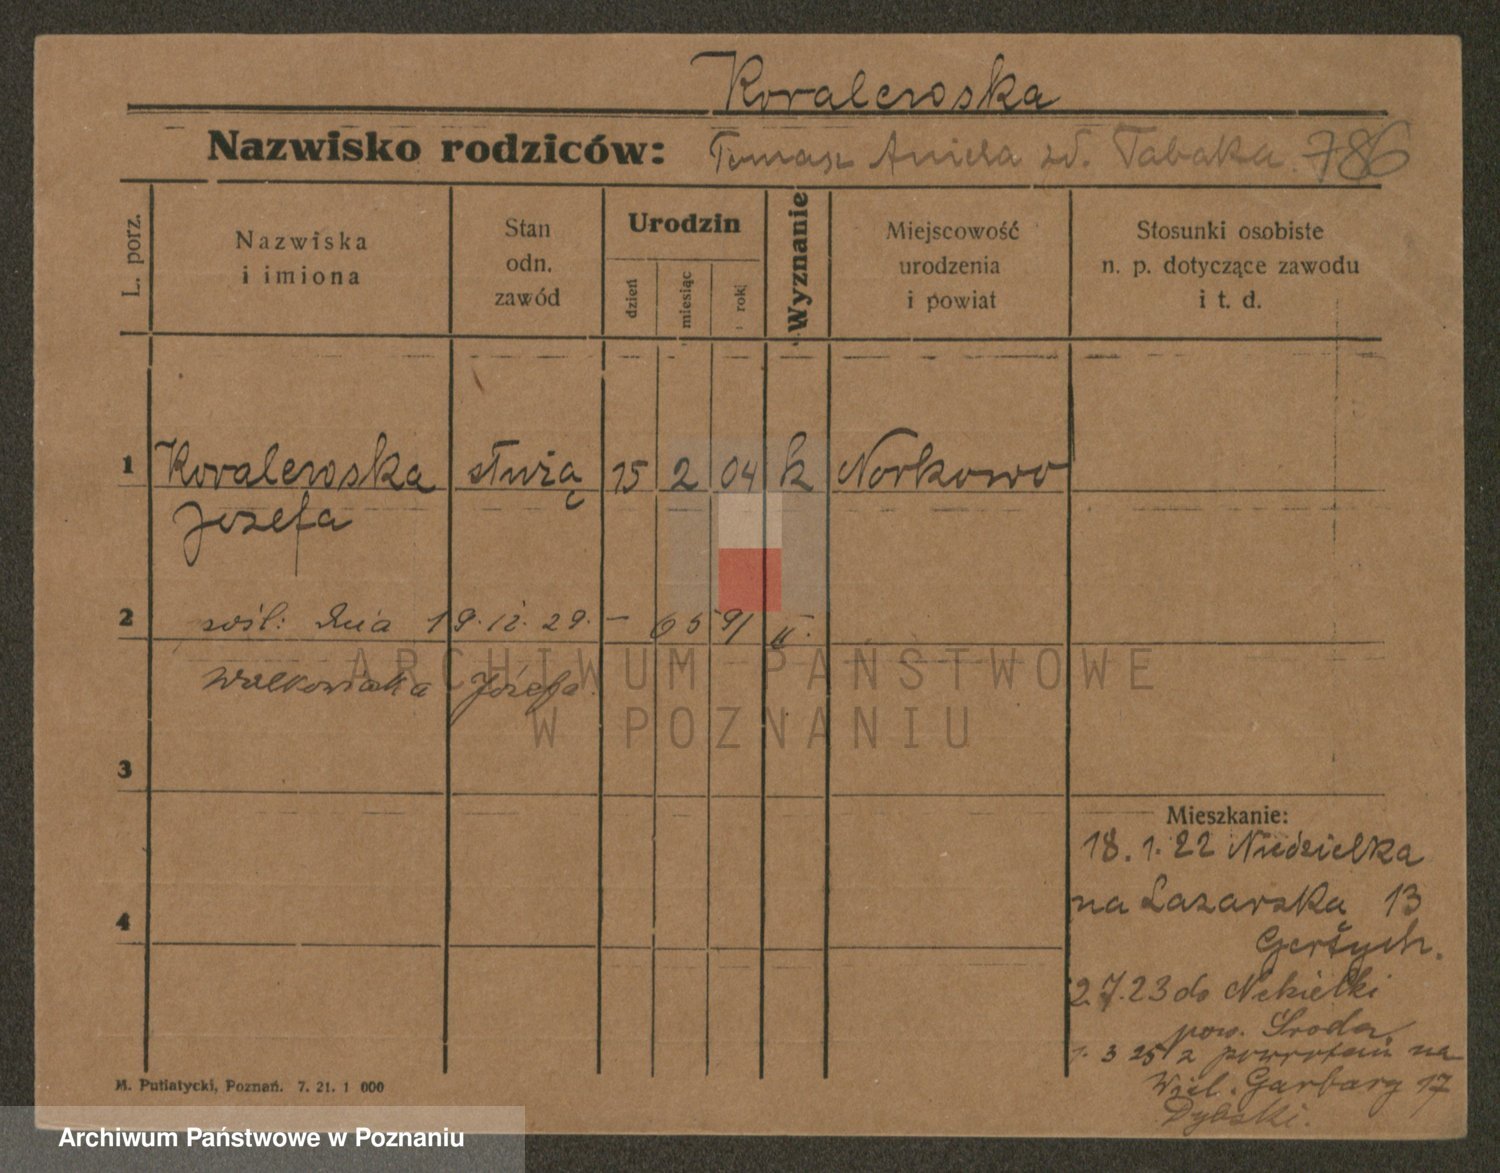 Kowalewska
Nazwisko rodziców: Tomasz Aniela zd. Tabaka. 786
L. porz.
Nazwiska
i imiona
Stan
odn.
zawód
Urodzin
dzień
miesiąc
rok
Wyznanie
Miejscowość
urodzenia
i powiat
Stosunki osobiste
n. p. dotyczące zawodu
i t. d.
1 Kowalewska służą 15 2 04 k Norkowo
c
Jozefa
2 dnia 19.12.29. – 65 91 II.
Walkowiaka Józefa.
3
4
Mieszkanie:
18.1.22 Niedzielka
na Lazarską 13
Gerżych.
2.7.23 do Nekielki
pow. Środa
1.3 25 z powrotem na
Wiel. Garbary 17
Dybski.
M. Putiatycki, Poznań. 7. 21. 1 000
ARCHIWUM PAŃSTWOWE
W POZNANIU
Archiwum Państwowe w Poznaniu